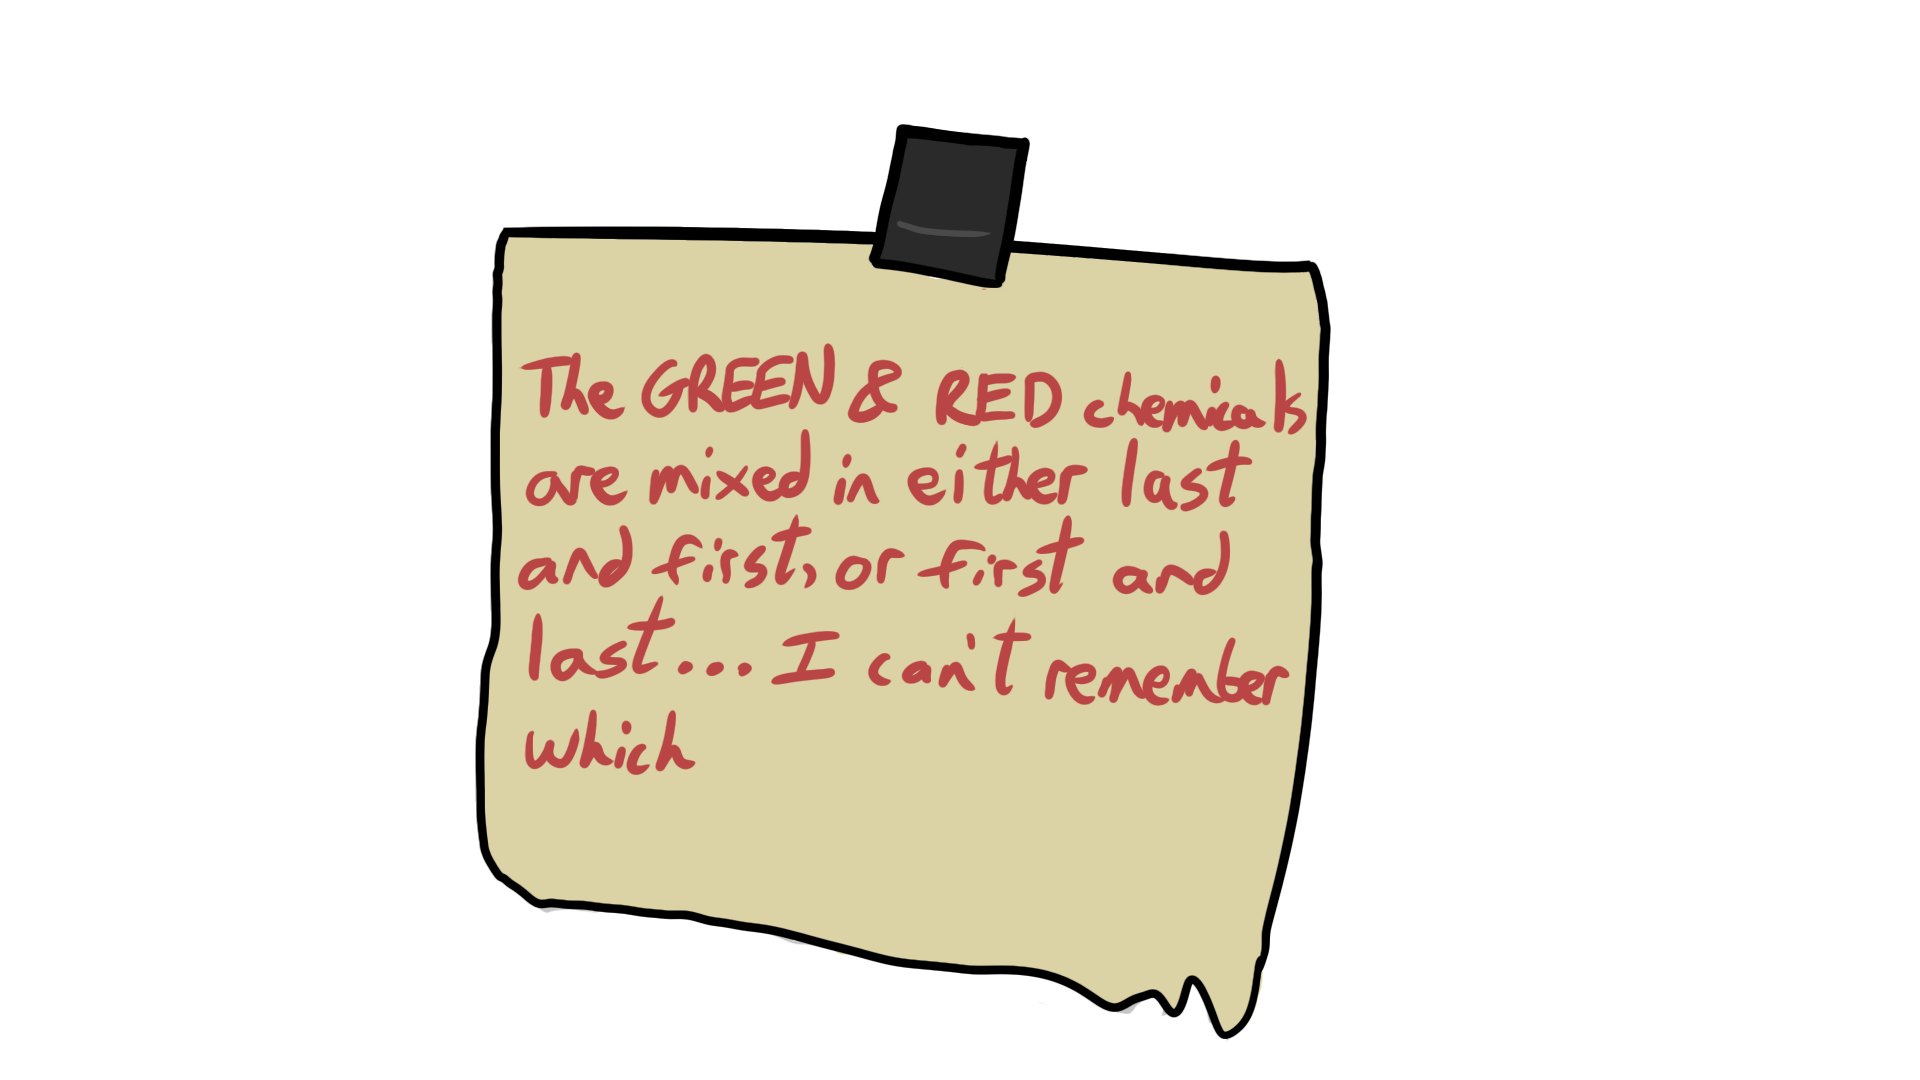 The GREEN & RED chemicals
are mixed in either last
and first, or first and
last... I can't remember
which